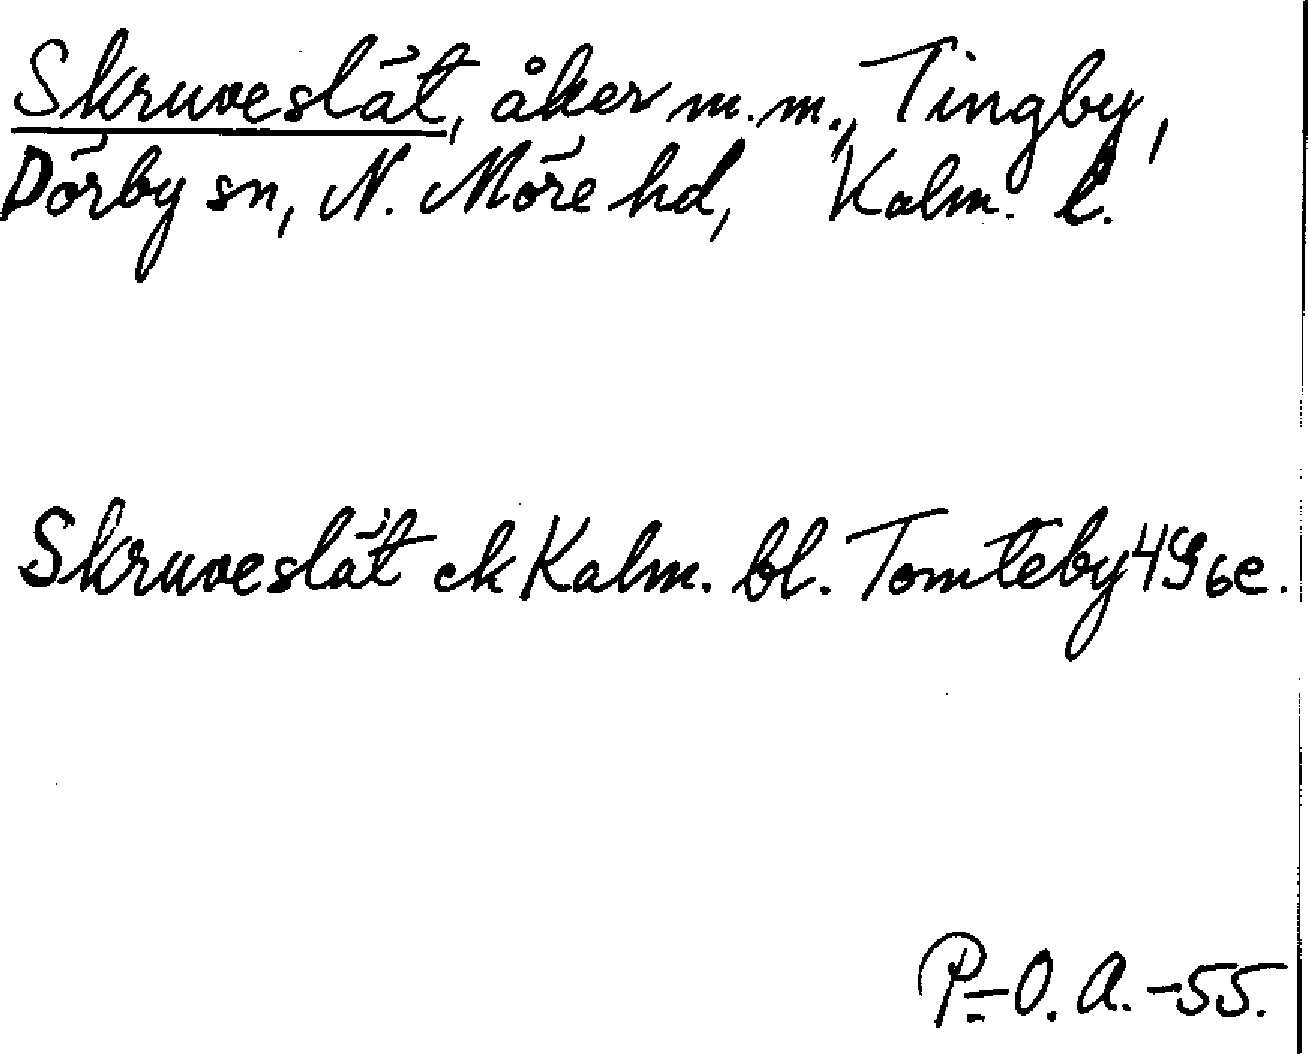 Skruveslät, åker m.m., Tingby,
Dörby sn, N. Möre hd, Kalm. l.
Skruveslät ek Kalm. bl. Tomteby 49 6e.
P-O. A. -55.